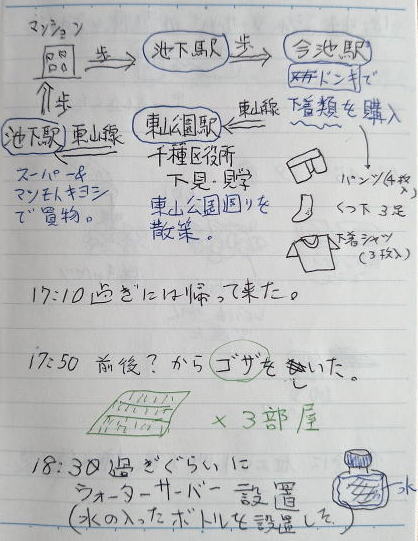 マンション
歩
池下駅
歩
今池駅
メガドンキで
下着類を購入
歩
池下駅
東山線
東山公園駅
東山線
千種区役所
下見・見学
スーパー&
マツモトキヨシ
で買物。
東山公園周りを
散策。
パンツ(4枚入)
くつ下 3足
下着シャツ
(3枚入)
17:10 過ぎには帰って来た。
17:50 前後?から ゴザをしいた。
× 3部屋
18:30 過ぎぐらいに
ウォーターサーバー 設置
(水の入ったボトルを設置した)
水